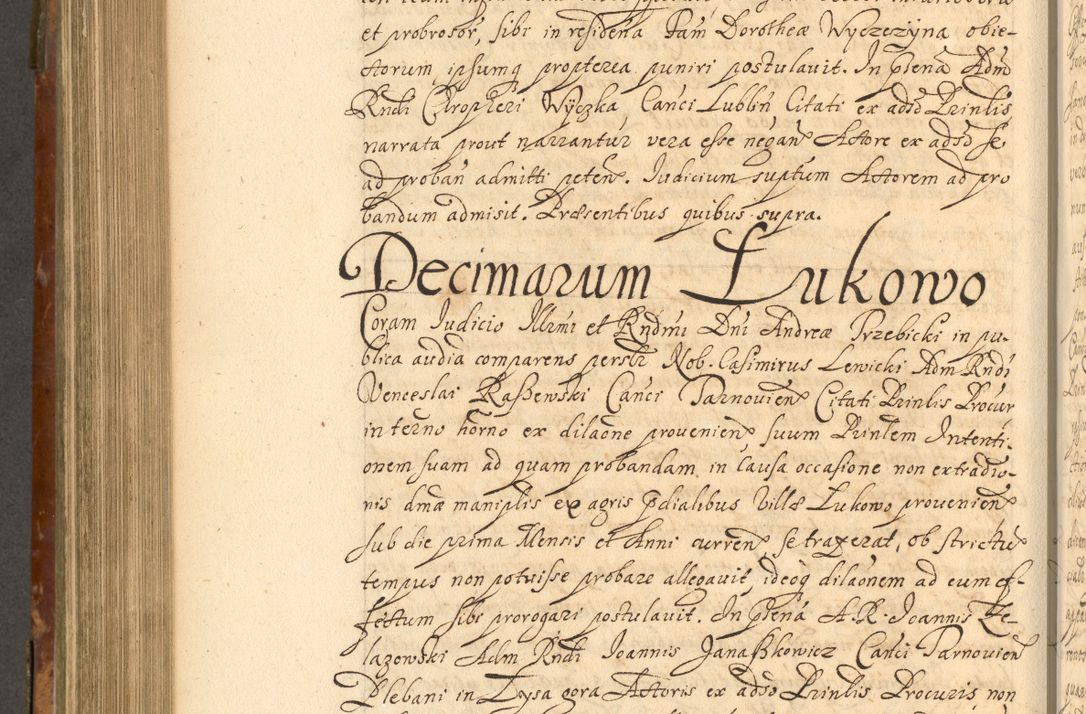 et probrosor, sibi in resideña Pam Dorotheæ Wyczezyna obie-
ctorum ipsumq propterea puniri postulavit. In pſeña Adm
Rndi Chropheri Wyczka Canci Lublin̄ Citati ex adſo Prinlis
narrata prout narrantur vera eſse negan Actore ex adſo ſe
ad proban admitti peten. Iudicium suptum Actorem ad pro
bandum admisit. Præsentibus quibus supra.
Decimarum Lukowo
Coram Iudicio Illrmi et Rndmi Dni Andreæ Trzebicki in pu-
blica audia comparens perslr Nob. Casimirus Lewicki Adm Rndi
Venceslai Kaſzewski Canci Tarnovien Citati Prinlis Procur
in terno horno ex dilaone provenien suum Prinlem Intenti-
onem suam ad quam probandam in Causa occasione non extradio-
nis dmæ maniplis ex agris pdialibus Villæ Lukowo provenien
sub die prima Mensis et Anni curren se traxerat, ob strictu
tempus non potuisse probare allegavit ideoq dilaonem ad eum ef-
fectum sibi prorogari postulavit. In pſeña A.R. Joannis Ze-
lazowski Adm Rndi Joannis Janaſzkowicz Canci Tarnovien
Plebani in Lysa gora Actoris ex adſo Prinlis Procuris non